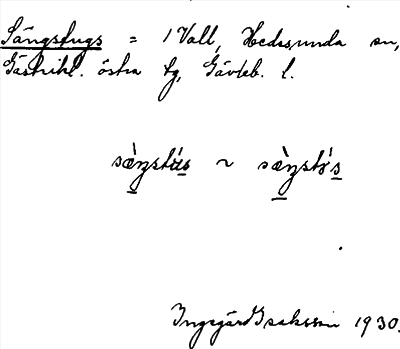 Sängstugs = 1 Vall, Hedesunda sn,
Gästrikl. östra tg, Gävleb. l.
sæ̀ŋstu̇s ~ sæ̀ŋstɤs
Ingegärd Isaksson 1930.